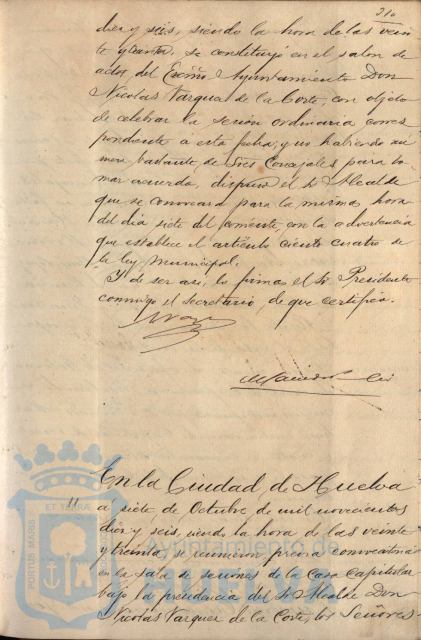 210
diez y seis, siendo la hora de las vein
te y treinta, se constituyó en el salon de
actos del Excmo Ayuntamiento Don
Nicolás Vazquez de la Corte, con objeto
de celebrar la sesión ordinaria corres
pondiente a esta fecha; y no habiendo nú
mero bastante de Sres Concejales para to
mar acuerdo, dispuso el Sr Alcalde
que se convocara para la misma hora
del dia siete del corriente, con la advertencia
que establece el artículo ciento cuatro de
la ley Municipal.
Y de ser asi, lo firma el Sr Presidente
conmigo el Secretario, de que certifico.
En la Ciudad de Huelva
11
á siete de Octubre de mil novecientos
diez y seis, siendo la hora de las veinte
y treinta, se reunieron previa convocatoria
en la sala de sesiones de la Casa Capitular
bajo la presidencia del Sr Alcalde Don
Nicolás Vazquez de la Corte, los Señores
PORTUS MARIS
ET TERRAE
Ayuntamiento de